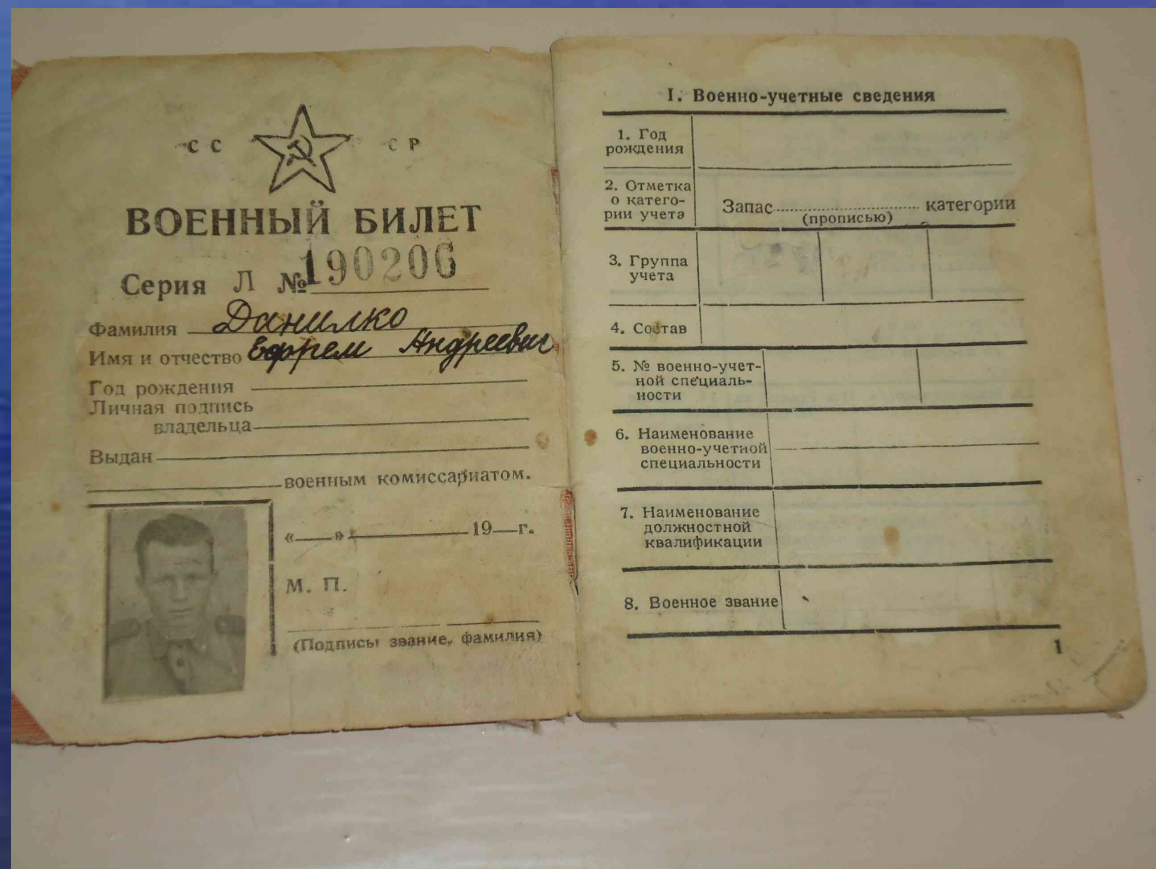 СС СР
ВОЕННЫЙ БИЛЕТ
Серия Л № 190206
Фамилия Данилко
Имя и отчество Ефрем Андреевич
Год рождения
Личная подпись
владельца
Выдан
военным комиссариатом.
« » 19 г.
М. П.
(Подпись, звание, фамилия)
I. Военно-учетные сведения
1. Год
рождения
2. Отметка
о катего-
рии учета
Запас категории
(прописью)
3. Группа
учета
4. Состав
5. № военно-учет-
ной специаль-
ности
6. Наименование
военно-учетной
специальности
7. Наименование
должностной
квалификации
8. Военное звание
1